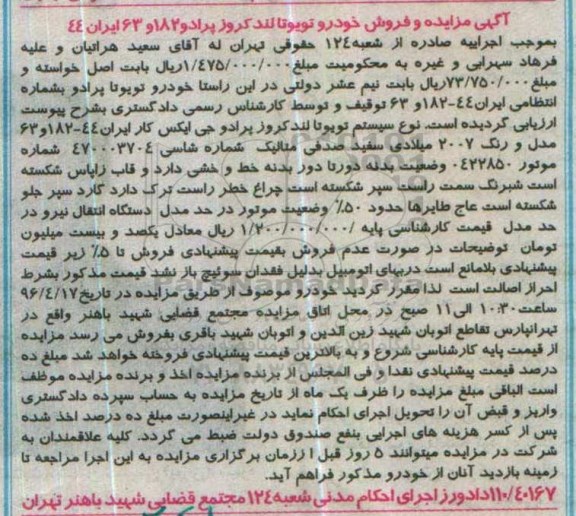 آگهی مزایده و فروش خودرو تویوتا لند کروز پرادو ۱۸۲و ۶۳ ایران ۴۴
بموجب اجراییه صادره از شعبه۱۲۴ حقوقی تهران له آقای سعید هراتیان و علیه
فرهاد سهرابی و غیره به محکومیت مبلغ۱/۴۷۵/۰۰۰/۰۰۰ریال بابت اصل خواسته و
مبلغ۷۳/۷۵۰/۰۰۰ریال بابت نیم عشر دولتی در این راستا خودرو تویوتا پرادو بشماره
انتظامی ایران۴۴-۱۸۲و ۶۳ توقیف و توسط کارشناس رسمی دادگستری بشرح پیوست
ارزیابی گردیده است. نوع سیستم تویوتا لندکروز پرادو جی ایکس کار ایران۴۴-۱۸۲و۶۳
مدل و رنگ ۲۰۰۷ میلادی سفید صدفی متالیک شماره شاسی ۴۷۰۰۰۳۷۰۴ شماره
موتور ۰۴۲۲۸۵۰ وضعیت بدنه دورتا دور بدنه خط و خشی دارد و قاب زاپاس شکسته
است شبرنگ سمت راست سپر شکسته است چراغ خطر راست ترک دارد گارد سپر جلو
شکسته است عاج طایرها حدود ۵۰٪ وضعیت موتور در حد مدل دستگاه انتقال نیرو در
حد مدل قیمت کارشناسی پایه /۱/۲۰۰/۰۰۰/۰۰۰ ریال معادل یکصد و بیست میلیون
تومان توضیحات در صورت عدم فروش بقیمت پیشنهادی فروش تا ۵٪ زیر قیمت
پیشنهادی بلامانع است دربهای اتومبیل بدلیل فقدان سوئیچ باز نشد قیمت مذکور بشرط
احراز اصالت است لذا مقرر گردید خودرو موصوف از طریق مزایده در تاریخ۹۶/۴/۱۷
ساعت۱۰:۳۰ الی۱۱ صبح در محل اتاق مزایده مجتمع قضایی شهید باهنر واقع در
تهرانپارس تقاطع اتوبان شهید زین الدین و اتوبان شهید باقری بفروش می رسد مزایده
از قیمت پایه کارشناسی شروع و به بالاترین قیمت پیشنهادی فروخته خواهد شد مبلغ ده
درصد قیمت پیشنهادی نقدا و فی المجلس از برنده مزایده اخذ و برنده مزایده موظف
است الباقی مبلغ مزایده را ظرف یک ماه از تاریخ مزایده به حساب سپرده دادگستری
واریز و قبض آن را تحویل اجرای احکام نماید در غیراینصورت مبلغ ده درصد اخذ شده
پس از کسر هزینه های اجرایی بنفع صندوق دولت ضبط می گردد. کلیه علاقمندان به
شرکت در مزایده میتوانند ۵ روز قبل اززمان برگزاری مزایده به این اجرا مراجعه تا
زمینه بازدید آنان از خودرو مذکور فراهم آید.
۱۱۰/۴۰۱۶۷دادورز اجرای احکام مدنی شعبه۱۲۴ مجتمع قضایی شهید باهنر تهران